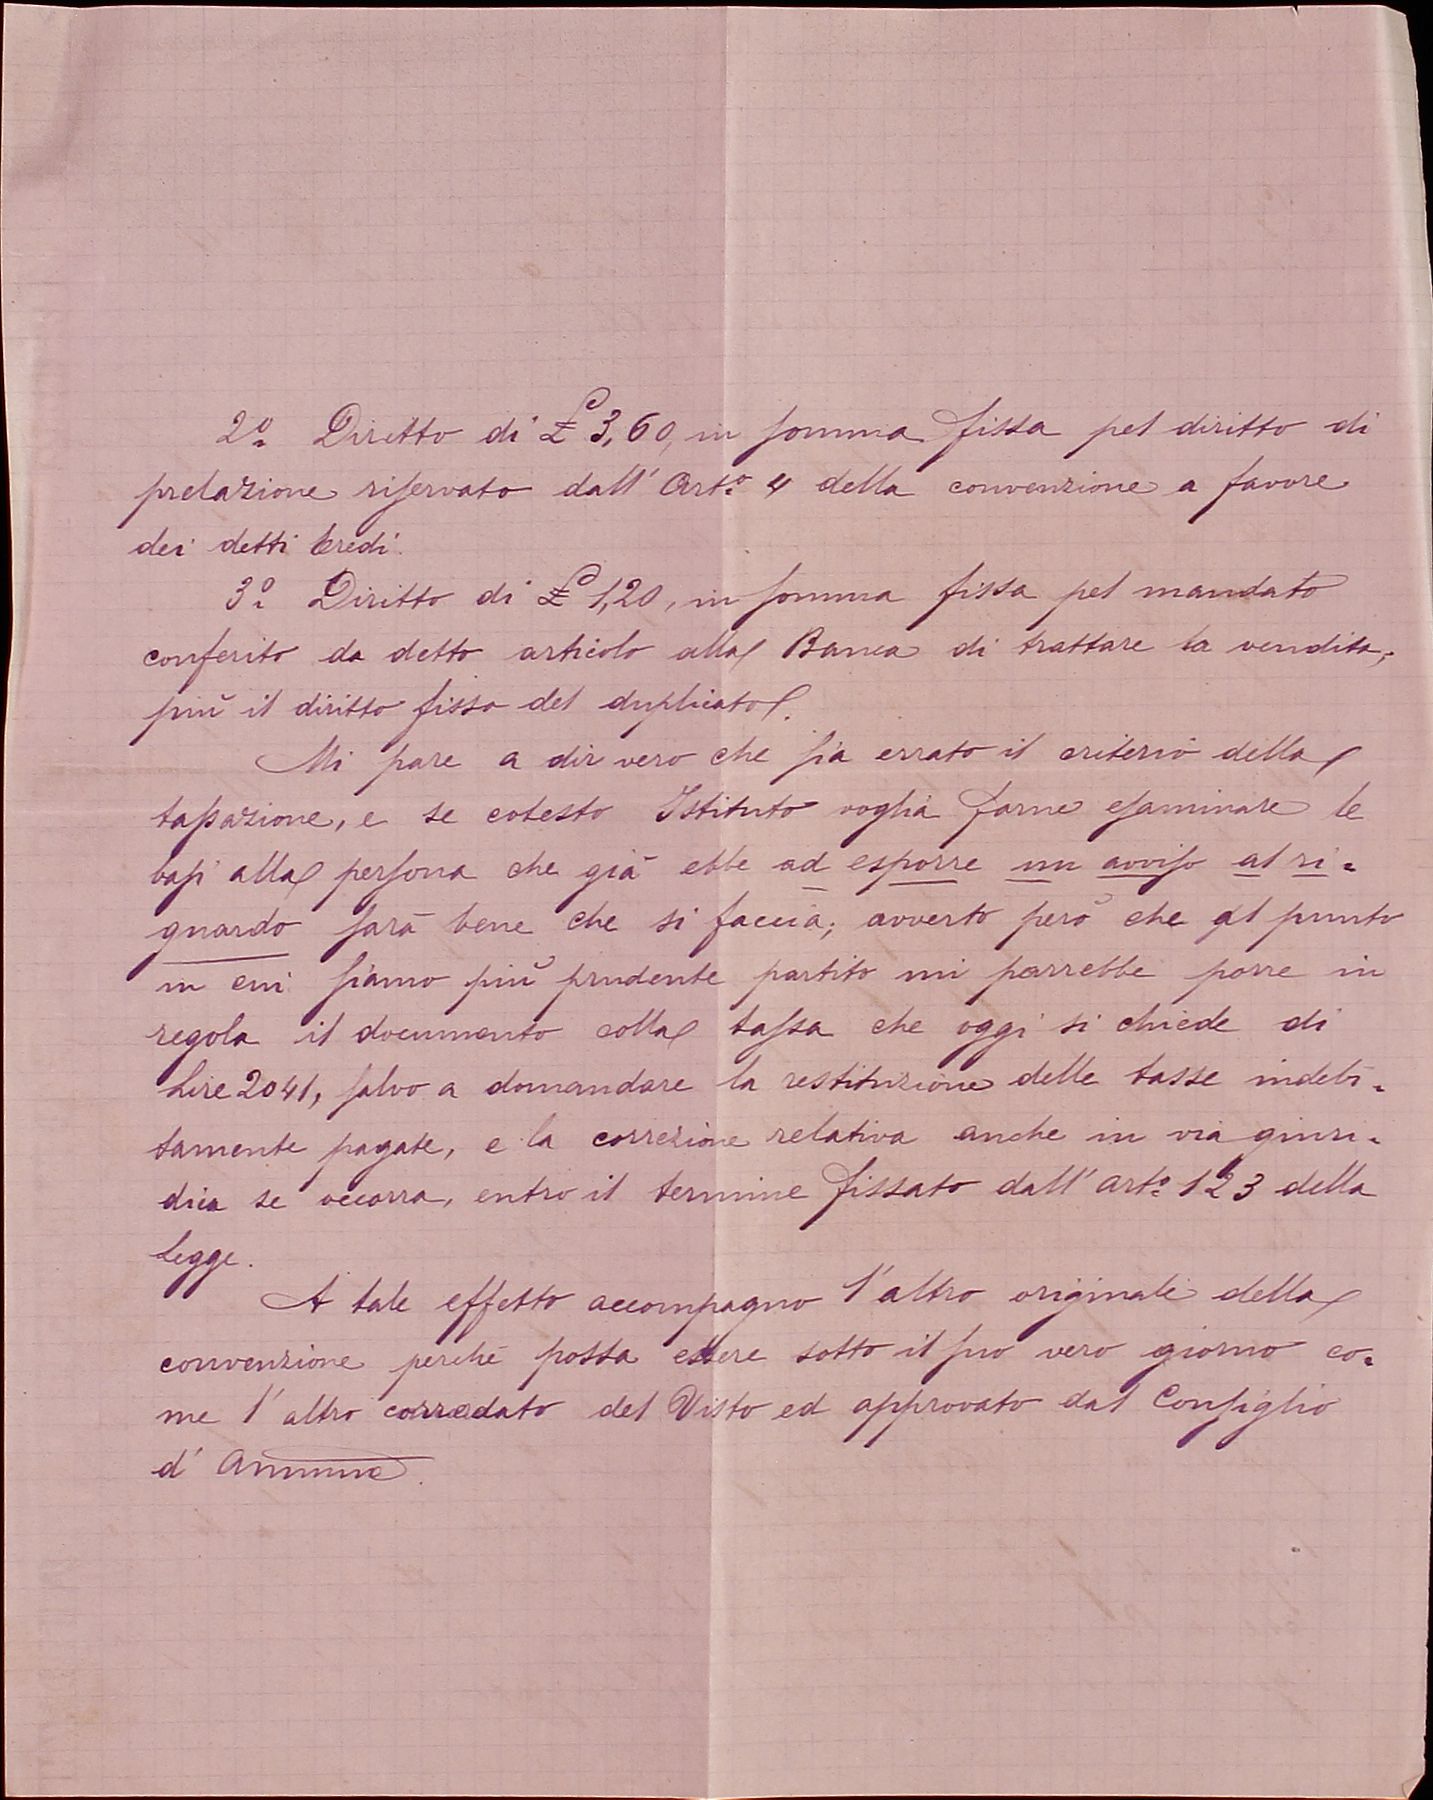 2º Diritto di £ 3,60, in somma fissa pel diritto di
prelazione riservato dall' Artº 4 della convenzione a favore
dei detti Eredi.
3º Diritto di £ 1,20, in somma fissa pel mandato
conferito da detto articolo alla Banca di trattare la vendita,
più il diritto fisso del duplicato.
Mi pare a dir vero che sia errato il criterio della
tassazione, e se cotesto Istituto voglia farne esaminare le
basi alla persona che già ebbe ad esporre un avviso al ri=
guardo sarà bene che si faccia; avverto però che al punto
in cui siamo più prudente partito mi parrebbe porre in
regola il documento colla tassa che oggi si chiede di
Lire 2041, salvo a domandare la restituzione delle tasse indebi=
tamente pagate, e la correzione relativa anche in via giuri=
dica se occorra, entro il termine fissato dall' artº 123 della
Legge.
A tale effetto accompagno l'altro originale della
convenzione perchè possa essere sotto il suo vero giorno co=
me l'altro corredato del Visto ed approvato dal Consiglio
d'